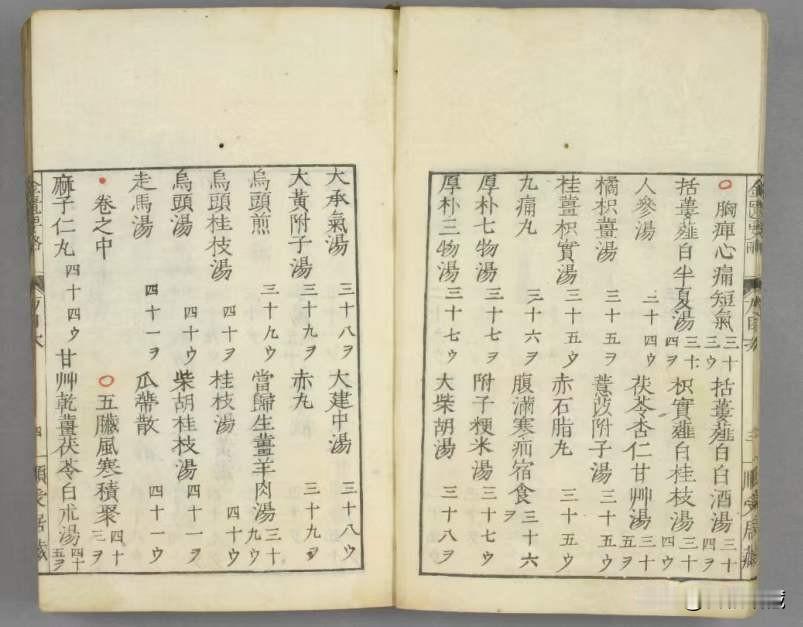 金匱要略 方目次 三 順受居藏
○胸痺心痛短氣 三十三ウ 括蔞薤白白酒湯 三十四ヲ
括蔞薤白半夏湯 三十四ヲ 枳實薤白桂枝湯 三十四ウ
人參湯 三十四ウ 茯苓杏仁甘艸湯 三十五ヲ
橘枳薑湯 三十五ヲ 薏苡附子湯 三十五ウ
桂薑枳實湯 三十五ウ 赤石脂丸 三十五ウ
九痛丸 三十六ヲ 腹滿寒疝宿食 三十六ヲ
厚朴七物湯 三十七ヲ 附子粳米湯 三十七ウ
厚朴三物湯 三十七ウ 大柴胡湯 三十八ヲ
大承氣湯 三十八ヲ 大建中湯 三十八ウ
大黃附子湯 三十九ヲ 赤丸 三十九ヲ
烏頭煎 三十九ウ 當歸生薑羊肉湯 三十九ウ
烏頭桂枝湯 四十ヲ 桂枝湯 四十ウ
烏頭湯 四十ウ 柴胡桂枝湯 四十一ヲ
走馬湯 四十一ヲ 瓜蒂散 四十一ウ
卷之中 ○五臟風寒積聚 四十三ヲ
麻子仁丸 四十四ウ 甘艸乾薑茯苓白朮湯 四十五ヲ
金匱要略 方目次 四 順受居藏